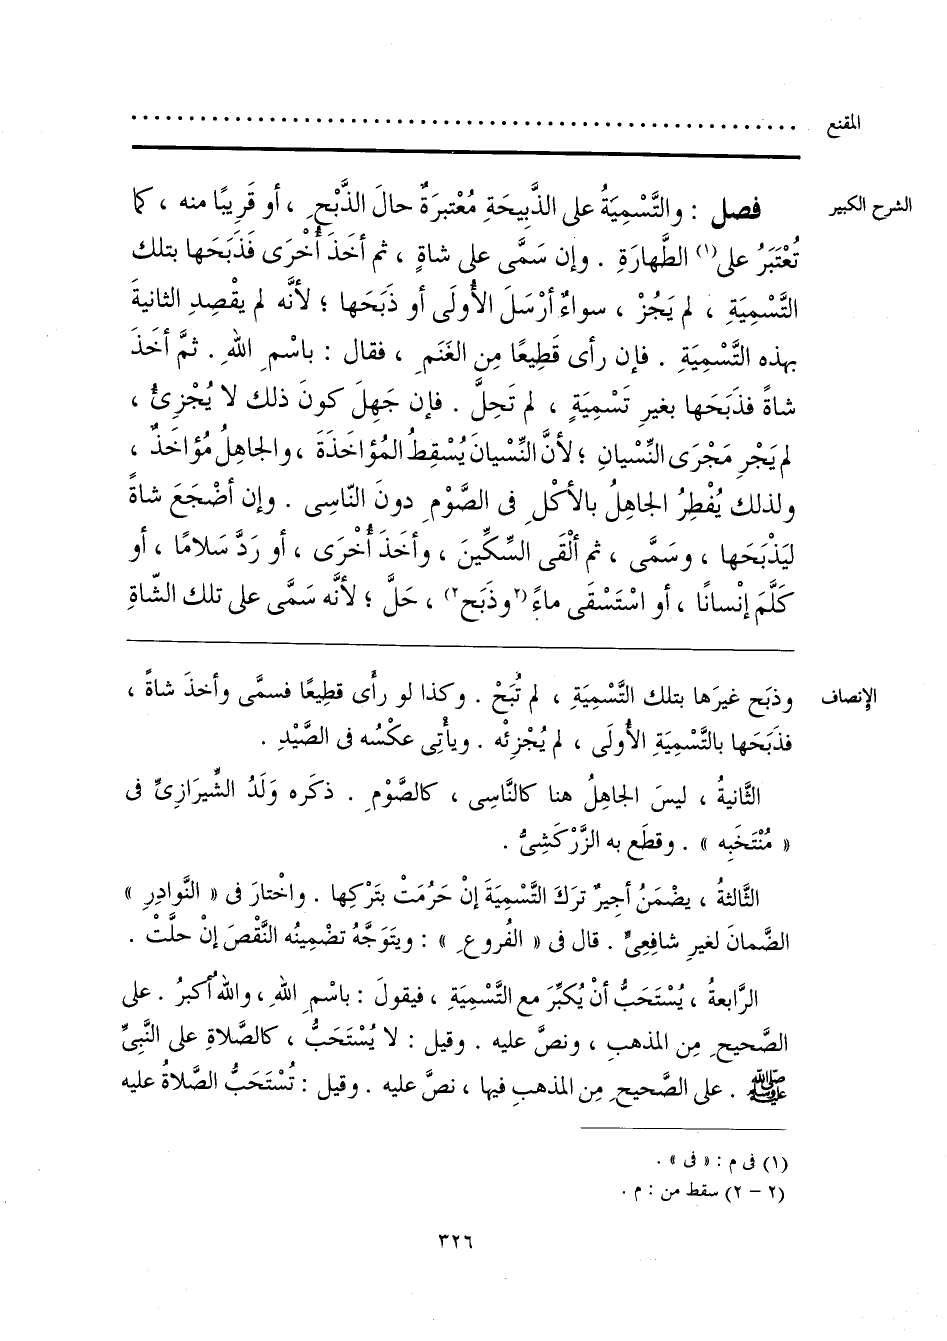 المقنع ............................................................
الشرح الكبير فصل : والتَّسْمِيَةُ على الذَّبِيحَةِ مُعْتبرَةٌ حالَ الذَّبْحِ ، أو قَرِيبًا منه ، كما
تُعْتَبَرُ على(١) الطَّهارَةِ . وإن سَمَّى على شاةٍ ، ثم أخَذَ أُخْرَى فَذَبَحَها بتلك
التَّسْمِيَةِ ، لم يَجُزْ ، سواءٌ أرْسَلَ الأُولَى أو ذَبَحَها ؛ لأنَّه لم يقْصِدِ الثانيةَ
بهذه التَّسْمِيَةِ . فإن رأى قَطِيعًا مِن الغَنَمِ ، فقال : باسْمِ اللهِ . ثمَّ أخَذَ
شاةً فذَبَحَها بغيرِ تَسْمِيَةٍ ، لم تَحِلَّ . فإن جَهِلَ كونَ ذلك لا يُجْزِئُ ،
لم يَجْرِ مَجْرَى النِّسْيانِ ؛ لأنَّ النِّسْيانَ يُسْقِطُ المُؤاخَذَةَ ، والجاهِلُ مُؤاخَذٌ ،
ولذلك يُفْطِرُ الجاهِلُ بالأكْلِ فى الصَّوْمِ دونَ النّاسِى . وإن أضْجَعَ شاةً
ليَذْبَحَها ، وسَمَّى ، ثم ألْقَى السِّكِّينَ ، وأخَذَ أُخْرَى ، أو رَدَّ سَلامًا ، أو
كَلَّمَ إنْسانًا ، أو اسْتَسْقَى ماءً (٢وذَبَح٢) ، حَلَّ ؛ لأنَّه سَمَّى على تلك الشّاةِ
الإنصاف وذبَح غيرَها بتلك التَّسْمِيَةِ ، لم تُبَحْ . وكذا لو رأَى قطِيعًا فسمَّى وأخذَ شاةً ،
فذَبَحَها بالتَّسْمِيَةِ الأُولَى ، لم يُجْزِئْه . ويأْتِى عكْسُه فى الصَّيْدِ .
الثَّانيةُ ، ليسَ الجاهِلُ هنا كالنَّاسِى ، كالصَّوْمِ . ذكَره وَلَدُ الشِّيرَازِىِّ فى
« مُنْتَخَبِه » . وقطَع به الزَّرْكَشِىُّ .
الثَّالثةُ ، يضْمَنُ أجيرٌ ترَكَ التَّسْمِيَةَ إنْ حَرُمَتْ بتَرْكِها . واخْتارَ فى « النَّوادِرِ »
الضَّمانَ لغيرِ شافِعِىٍّ . قال فى « الفُروعِ » : ويتَوَجَّهُ تضْمِينُه النَّقْصَ إنْ حلَّتْ .
الرَّابعةُ ، يُسْتَحَبُّ أنْ يُكبِّرَ مع التَّسْمِيَةِ ، فيقولَ : باسْمِ اللهِ ، واللهُ أكبرُ . على
الصَّحيحِ مِن المذهبِ ، ونصَّ عليه . وقيل : لا يُسْتَحَبُّ ، كالصَّلاةِ على النَّبِىِّ
ﷺ . على الصَّحيحِ مِن المذهبِ فيها ، نصَّ عليه . وقيل : تُسْتَحَبُّ الصَّلاةُ عليه
(١) فى م : « فى » .
(٢ – ٢) سقط من : م .
٣٢٦